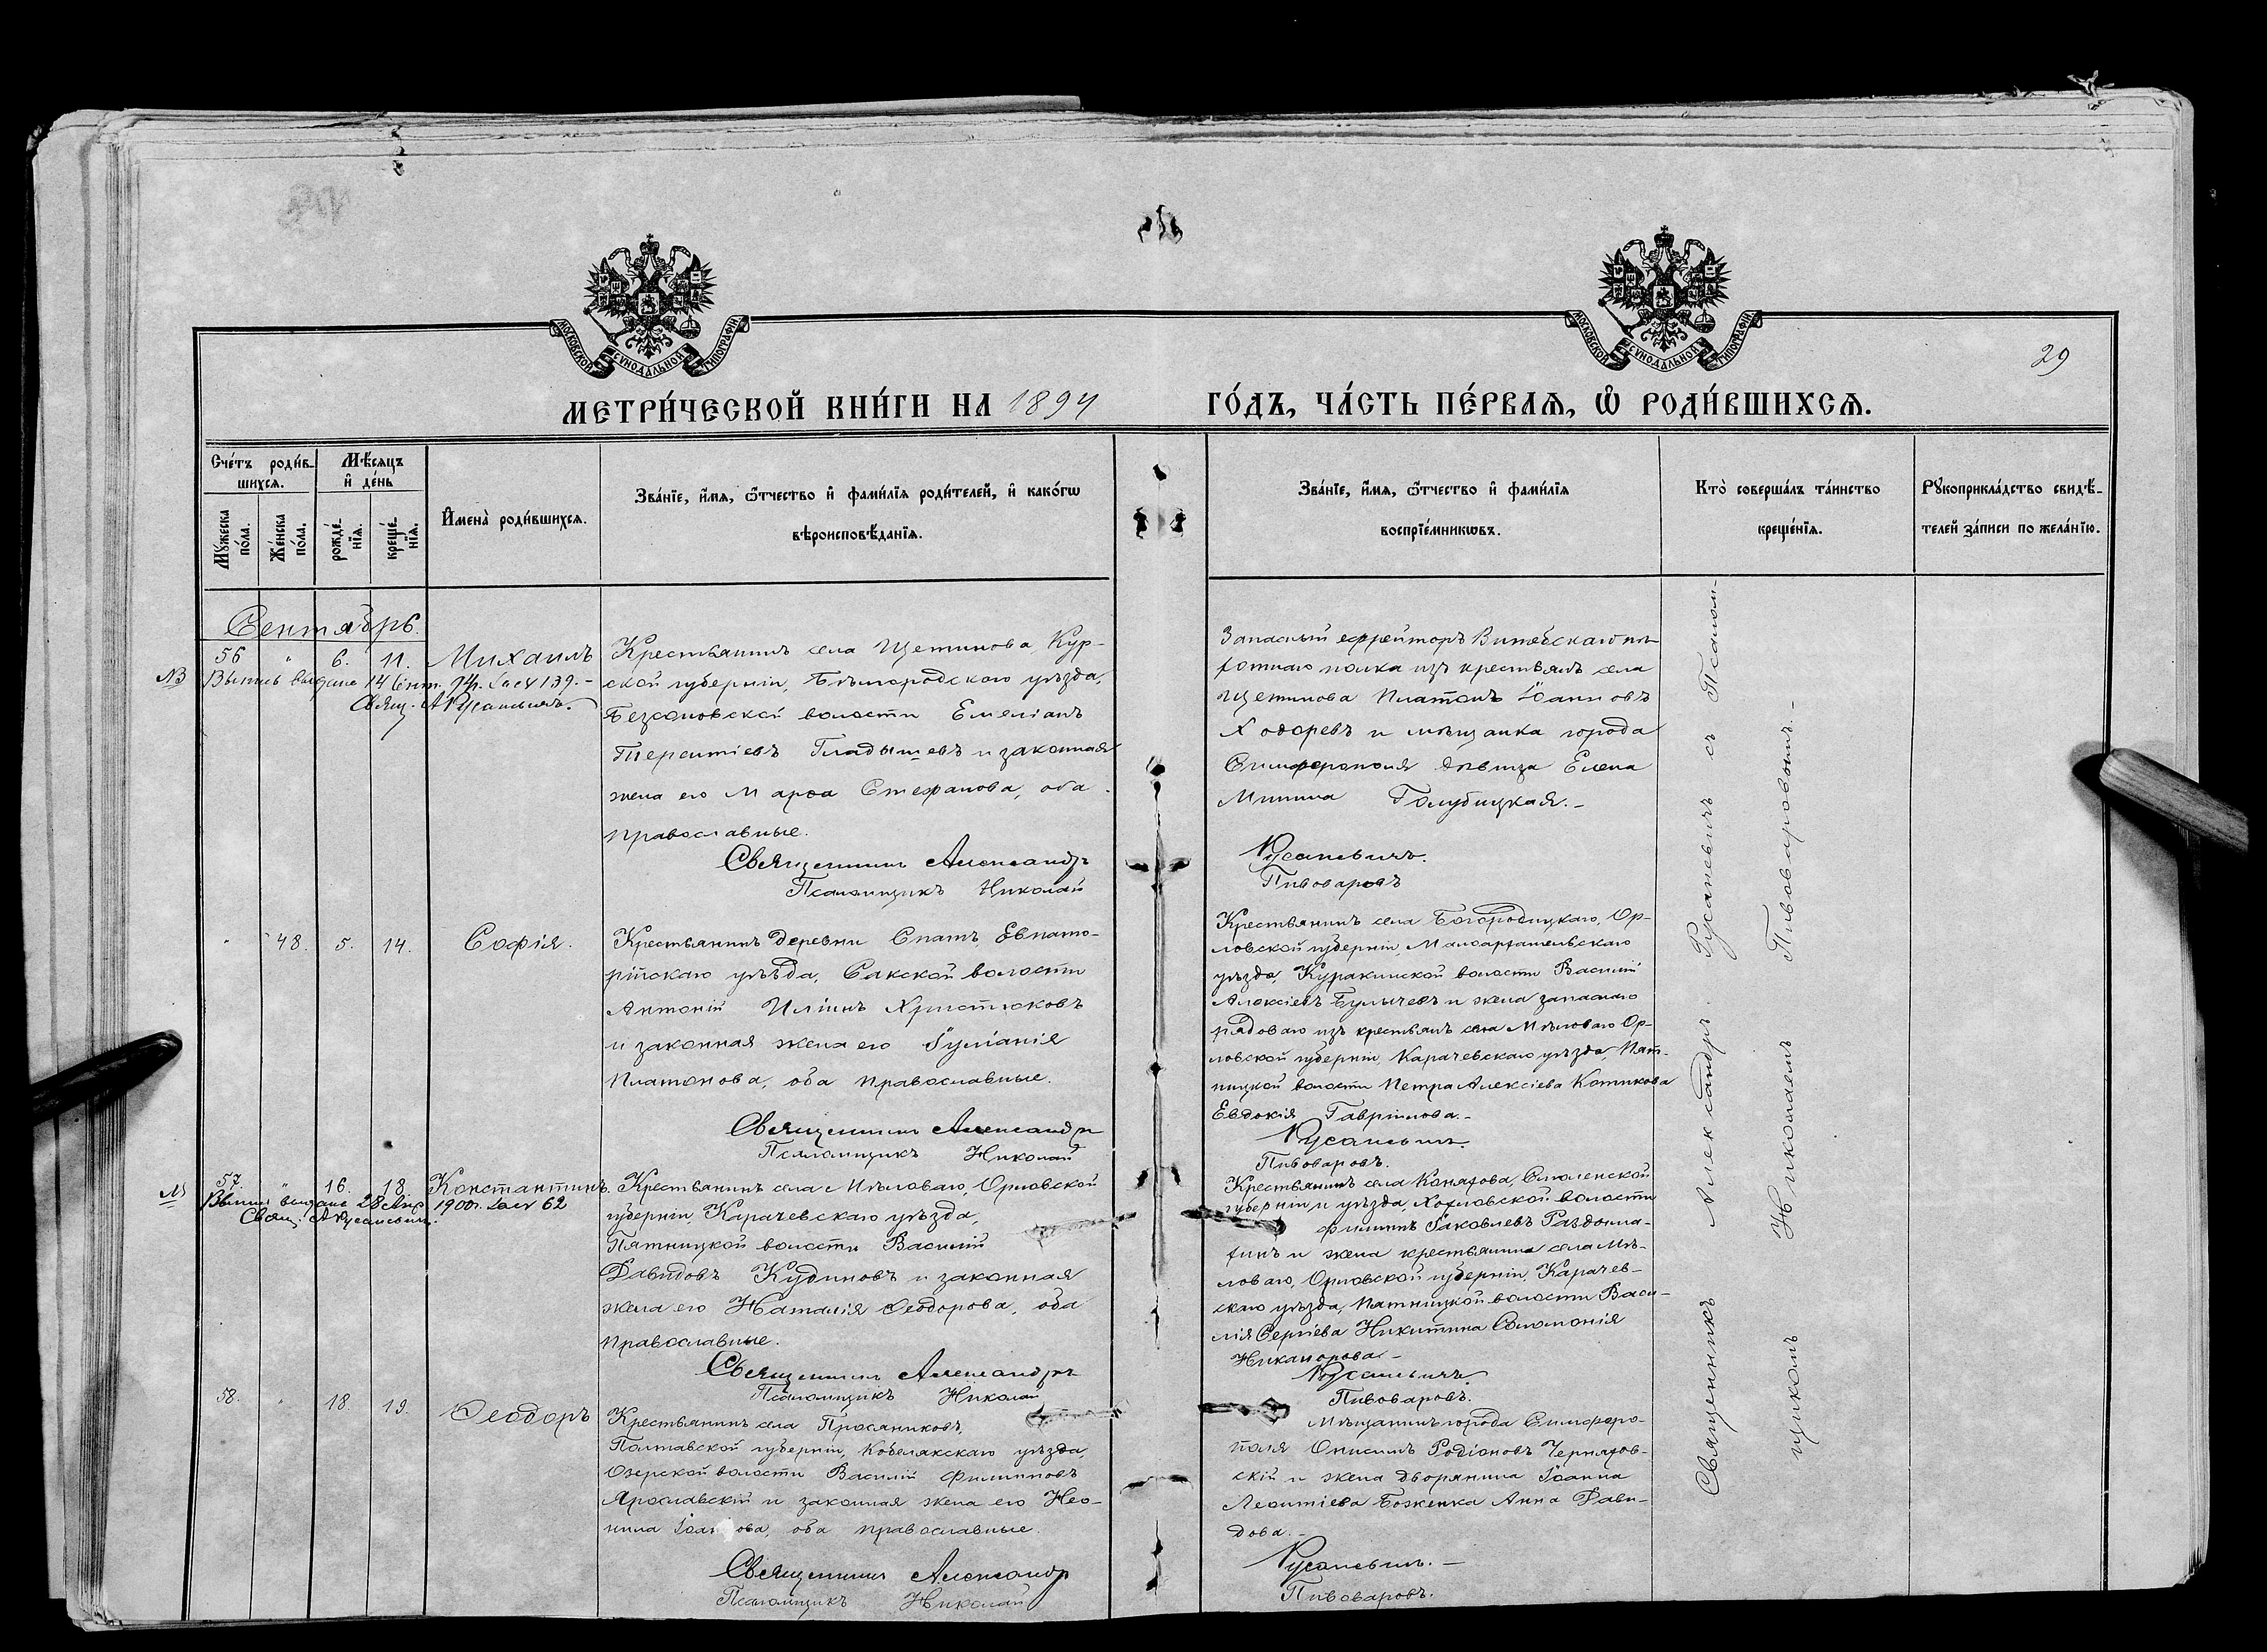 МОСКОВСКОЙ СѴНОДАЛЬНОЙ ТИПОГРАФІИ
МОСКОВСКОЙ СѴНОДАЛЬНОЙ ТИПОГРАФІИ
29
МЕТРИ́ЧЕСКОЙ КНИ́ГИ НА 1894 ГО́ДЪ, ЧА́СТЬ ПЕ́РВАѦ, Ѡ РОДИ́ВШИХСѦ.
Сче́тъ роди́в-
шихсѧ.
Мѣ́сѧцъ
и҆ де́нь
Мꙋ́жеска
по́ла.
Же́нска
по́ла.
рожде́-
нїѧ.
креще́-
нїѧ.
И҆мена̀ роди́вшихсѧ.
Зва́нїе, и҆́мѧ, ѻ҆́тчество и҆ фами́лїѧ роди́телей, и҆ како́гѡ
вѣроисповѣ́данїѧ.
Зва́нїе, и҆́мѧ, ѻ҆́тчество и҆ фами́лїѧ
воспрїе́мникѡвъ.
Кто̀ соверша́лъ та́инство
креще́нїѧ.
Рꙋкоприкла́дство свидѣ́-
телей за́писи по жела́нїю.
Сентябрь.
56 " 6. 11. Михаилъ
Выпись выдана 14 Сент. 94г. за № 139. -
Свящ. А Русаневичъ.
Крестьянинъ села Щетинова Кур-
ской губерніи, Бѣлгородскаго уѣзда,
Безсоновской волости Емеліанъ
Терентіевъ Гладышевъ и законная
жена его Марѳа Стефанова, оба
православные.
Священникъ Александръ
Псаломщикъ Николай
Запасный ефрейторъ Витебскаго пѣ-
хотнаго полка изъ крестьянъ села
Щетинова Платонъ Іоанновъ
Ходоревъ и мѣщанка города
Симферополя дѣвица Елена
Минина Голубицкая. -
Русаневичъ.
Пивоваровъ
" 48. 5. 14. Софія.
Крестьянинъ деревни Спатъ, Евпато-
рійскаго уѣзда, Сакской волости
Антоній Иліинъ Христисковъ
и законная жена его Іуліанія
Платонова, оба православные.
Священникъ Александръ
Псаломщикъ Николай
Крестьянинъ села Богородицкаго, Ор-
ловской губерніи, Малоархангельскаго
уѣзда, Куракинской волости Василій
Алексіевъ Булычевъ и жена запаснаго
рядоваго изъ крестьянъ села Мѣловаго Ор-
ловской губерніи, Карачевскаго уѣзда, Пят-
ницкой волости Петра Алексіева Котикова
Евдокія Гавріилова. -
Русаневичъ.
Пивоваровъ.
57. " 16. 18. Константинъ.
Выпись выдана 28 Апр 1900г. за № 62
Свящ. А Русаневичъ.
Крестьянинъ села Мѣловаго, Орловской
губерніи, Карачевскаго уѣзда,
Пятницкой волости Василій
Давидовъ Кудиновъ и законная
жена его Наталія Ѳеодорова, оба
православные.
Священникъ Александръ
Псаломщикъ Николай
Крестьянинъ села Коняхова, Смоленской
губерніи и уѣзда, Хохловской волости
Филиппъ Іаковлевъ
и жена крестьянина села Мѣ-
ловаго, Орловской губерніи, Карачев-
скаго уѣзда, Пятницкой волости Васи-
лія Сергіева Никитина Соломонія
Никанорова. -
Русаневичъ.
Пивоваровъ.
58. " 18. 19. Ѳеодоръ
Крестьянинъ села Просяниковъ,
Полтавской губерніи, Кобелякскаго уѣзда,
Озерской волости Василій Филипповъ
Ярославскій и законная жена его Нео-
нила Іоаннова, оба православные.
Священникъ Александръ
Псаломщикъ Николай
Мѣщанинъ города Симферо-
поля Онисимъ Родіоновъ Черняхов-
скій и жена дворянина Іоанна
Леонтіева Боженка Анна Дави-
дова. -
Русаневичъ. -
Пивоваровъ.
Священникъ Александръ Русаневичъ съ Псалом-
щикомъ Николаемъ Пивоваровымъ. -